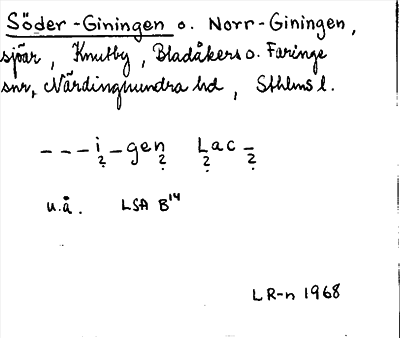 Söder-Giningen o. Norr-Giningen,
sjöar, Knutby, Bladåkers o. Faringe
snr, Närdinghundra hd, Sthlms l.
---i-gen Lac-
? ? ? ?
u.å. LSA B14
LR-n 1968